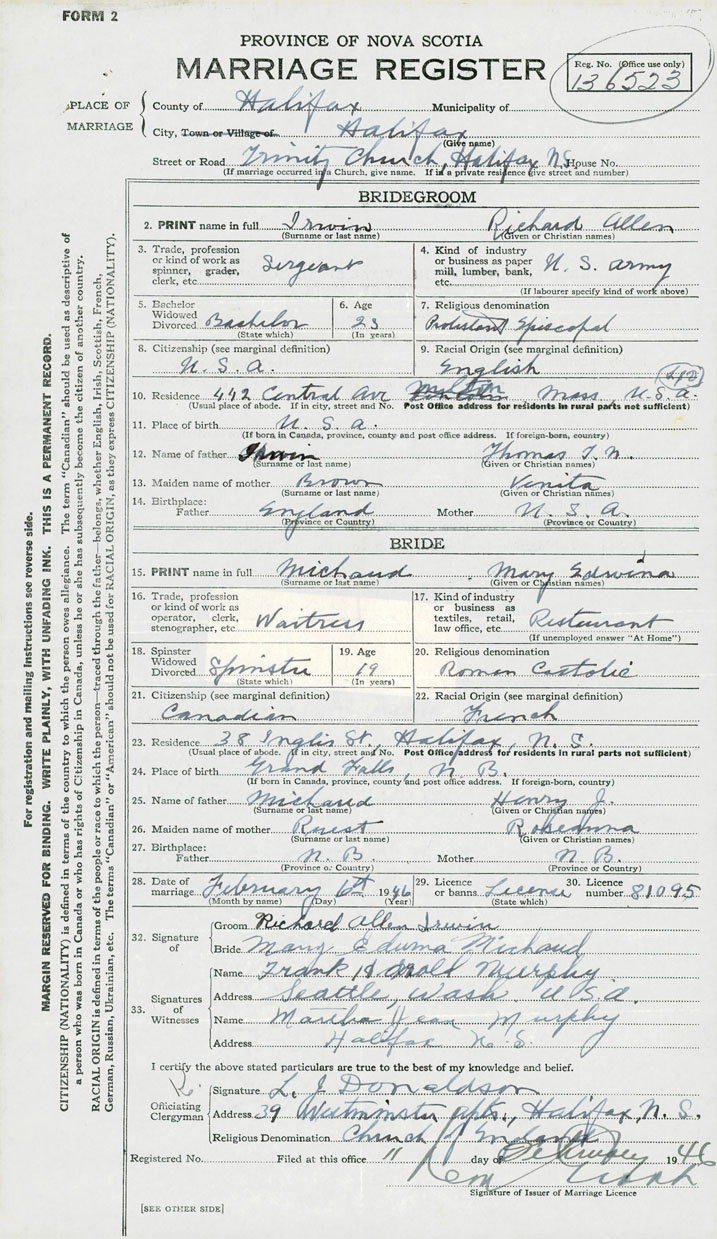 FORM 2
PROVINCE OF NOVA SCOTIA
MARRIAGE REGISTER
Reg. No. (Office use only)
136523
PLACE OF MARRIAGE
County of Halifax Municipality of
City, Town or Village of Halifax
(Give name)
Street or Road Trinity Church, Halifax N.S. House No.
(If marriage occurred in a Church, give name. If in a private residence give street and number)
BRIDEGROOM
2. PRINT name in full Irwin Richard Allen
(Surname or last name) (Given or Christian names)
3. Trade, profession or kind of work as spinner, grader, clerk, etc. Sergeant
4. Kind of industry or business as paper mill, lumber, bank, etc. U. S. Army
(If labourer specify kind of work above)
5. Bachelor Widowed Divorced Bachelor
(State which)
6. Age 23
(In years)
7. Religious denomination
Protestant Episcopal
8. Citizenship (see marginal definition)
U. S. A.
9. Racial Origin (see marginal definition)
English
10. Residence 442 Central Ave Milton, Mass, U.S.A.
(Usual place of abode. If in city, street and No. Post Office address for residents in rural parts not sufficient)
11. Place of birth U. S. A.
(If born in Canada, province, county and post office address. If foreign-born, country)
12. Name of father Irwin Thomas
(Surname or last name) (Given or Christian names)
13. Maiden name of mother Brown Venita
(Surname or last name) (Given or Christian names)
14. Birthplace:
Father England Mother U. S. A.
(Province or Country) (Province or Country)
BRIDE
15. PRINT name in full Michaud Mary Edwina
(Surname or last name) (Given or Christian names)
16. Trade, profession or kind of work as operator, clerk, stenographer, etc. Waitress
17. Kind of industry or business as textiles, retail, law office, etc. Restaurant
(If unemployed answer "At Home")
18. Spinster Widowed Divorced Spinster
(State which)
19. Age 19
(In years)
20. Religious denomination
Roman Catholic
21. Citizenship (see marginal definition)
Canadian
22. Racial Origin (see marginal definition)
French
23. Residence 38 Inglis St., Halifax, N. S.
(Usual place of abode. If in city, street and No. Post Office address for residents in rural parts not sufficient)
24. Place of birth Grand Falls, N. B.
(If born in Canada, province, county and post office address. If foreign-born, country)
25. Name of father Michaud Henry J.
(Surname or last name) (Given or Christian names)
26. Maiden name of mother Ruest Roseanna
(Surname or last name) (Given or Christian names)
27. Birthplace:
Father N. B. Mother N. B.
(Province or Country) (Province or Country)
28. Date of marriage February 6th 1946
(Month by name) (Day) (Year)
29. Licence or banns License
(State which)
30. Licence number 81095
32. Signature of
Groom Richard Allen Irwin
Bride Mary Edwina Michaud
33. Signatures of Witnesses
Name Frank Harold Murphy
Address Seattle, Wash U.S.A.
Name Martha Jean Murphy
Address Halifax N. S.
I certify the above stated particulars are true to the best of my knowledge and belief.
Officiating Clergyman
Signature L. J. Donaldson
Address 39 Westminster Apts., Halifax, N. S.
Religious Denomination Church of England
Registered No. Filed at this office 11 day of February 1946
Signature of Issuer of Marriage Licence
[SEE OTHER SIDE]
For registration and mailing instructions see reverse side.
MARGIN RESERVED FOR BINDING. WRITE PLAINLY, WITH UNFADING INK. THIS IS A PERMANENT RECORD.
CITIZENSHIP (NATIONALITY) is defined in terms of the country to which the person owes allegiance. The term "Canadian" should be used as descriptive of
a person who was born in Canada or who has rights of Citizenship in Canada, unless he or she has subsequently become the citizen of another country.
RACIAL ORIGIN is defined in terms of the people or race to which the person—traced through the father—belongs, whether English, Irish, Scottish, French,
German, Russian, Ukrainian, etc. The terms "Canadian" or "American" should not be used for RACIAL ORIGIN, as they express CITIZENSHIP (NATIONALITY).